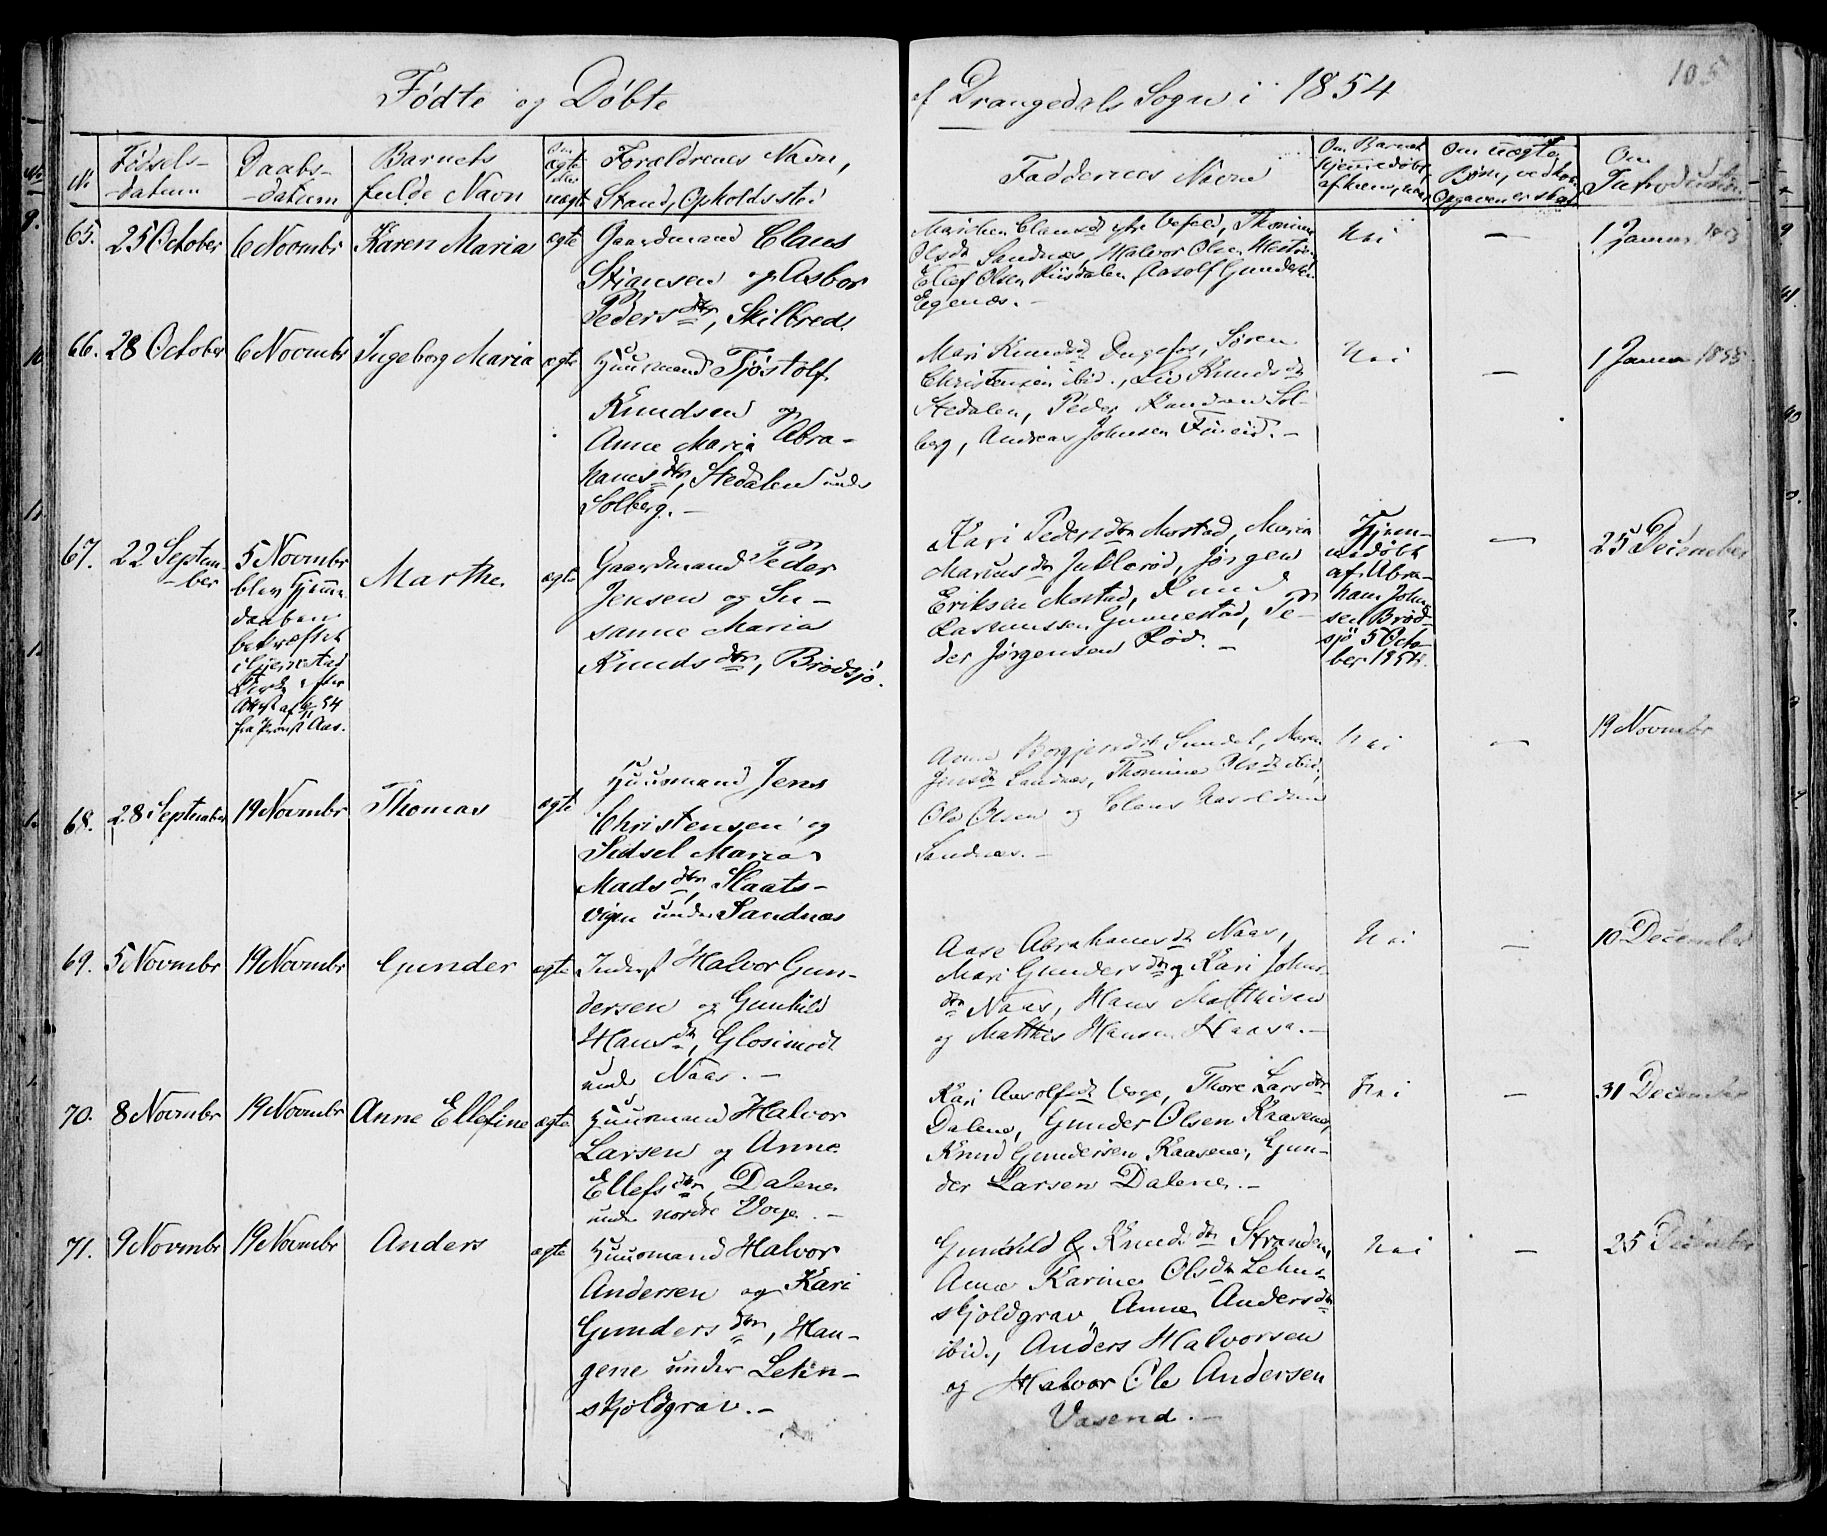 105
Fødte og Døbte
af Drangedals Sogn i 1854
No
Fødsels-
-datum
Daabs-
-datum
Barnets
fulde Navn
Om
ægte
eller
uægte
Forældrenes Navn,
Stand, Opholdssted
Faddernes Navne
Om Barnet
hjemmedøbt
af hvem, naar
Om uægte
Børn, ved hvem
Opgaven er skeet
Om
Introduction
65.
25 October
6 Novmbr
Karen Maria
ægte
Gaardmand Claus
Stiansen og Asbor
Pedersdtr, Skilbred.
Clausd ytre Thomine
Olsd Sandnæs, Halvor Olsen
Ellef Olsen Aasolf Gunders
Egenæs. -
Nei
—
1 Januar
66.
28 October
6 Novmbr
Ingeborg Maria
ægte
Huusmand Tjøstolf
Knudsen og
Anne Maria Abra-
hamsdtr, Stedalen under
Solberg. -
Mari Knudsd Søren
Christensen ibid., Liv Knudsdtr
Stedalen, Peder Sol-
berg, Andreas Johnsen
Nei
—
1 Januar 1855
67.
22 Septem-
-ber
5 Novmbr
blev Hjemme
daaben
bekræftet
i Gjerrestad
Kirke efter
Attest af 6/11 54
fra Provst Aas.
Marthe
ægte
Gaardmand Peder
Jensen og Su-
sanne Maria
Knudsdtr, Brødsjø.
Kari Pedersdtr Mostad, Maria
Mariusdtr Juklerød, Jørgen
Eriksen Mostad, Knud
Rasmussen Gunnestad, Pe-
der Jørgensen Rød. -
Hjem-
medøbt
af Abra-
ham John-
sen Brød-
sjø 5 Octo-
ber 1854.
—
25 December
68.
28 September
19 Novmbr
Thomas
ægte
Huusmand Jens
Christensen og
Sidsel Maria
Madsdtr, Slaats-
vigen under Sandnæs
Anne Sundal, Maren
Jensdtr Sandnæs, Thomine Olsdtr ibid,
Ole Olsen og Claus
Sandnæs. -
Nei
—
19 Novmbr
69.
5 Novmbr
19 Novmbr
Gunder
ægte
Inderst Halvor Gun-
dersen og Gunhild
Hansdtr, Glosimodt
under Naas. -
Aase Abrahamsdtr Naas,
Mari Gundersdtr og Kari Johns-
dtr Naas, Hans Matthisen
og Matthis Hansen
Nei
—
10 December
70.
8 Novmbr
19 Novmbr
Anne Ellefine
ægte
Huusmand Halvor
Larsen og Anne
Ellefsdtr, Dalene
under nordre Voje. -
Kari Aasolfsdtr Voje, Thore Larsdtr
Dalene, Gunder Olsen Kaasene,
Knud Gundersen Kaasene, Gun-
der Larsen Dalene. -
Nei
—
31 December
71.
9 Novmbr
19 Novmbr
Anders
ægte
Huusmand Halvor
Andersen og Kari
Gundersdtr, Hau-
gene under Lehn-
skjoldgrav. -
Gunhild Knudsdtr Stranden,
Anne Karine Olsdtr Lehn-
skjoldgrav, Anne Andersdtr
ibid., Anders Halvorsen
og Halvor Ole Andersen
Vasend. -
Nei
—
25 December